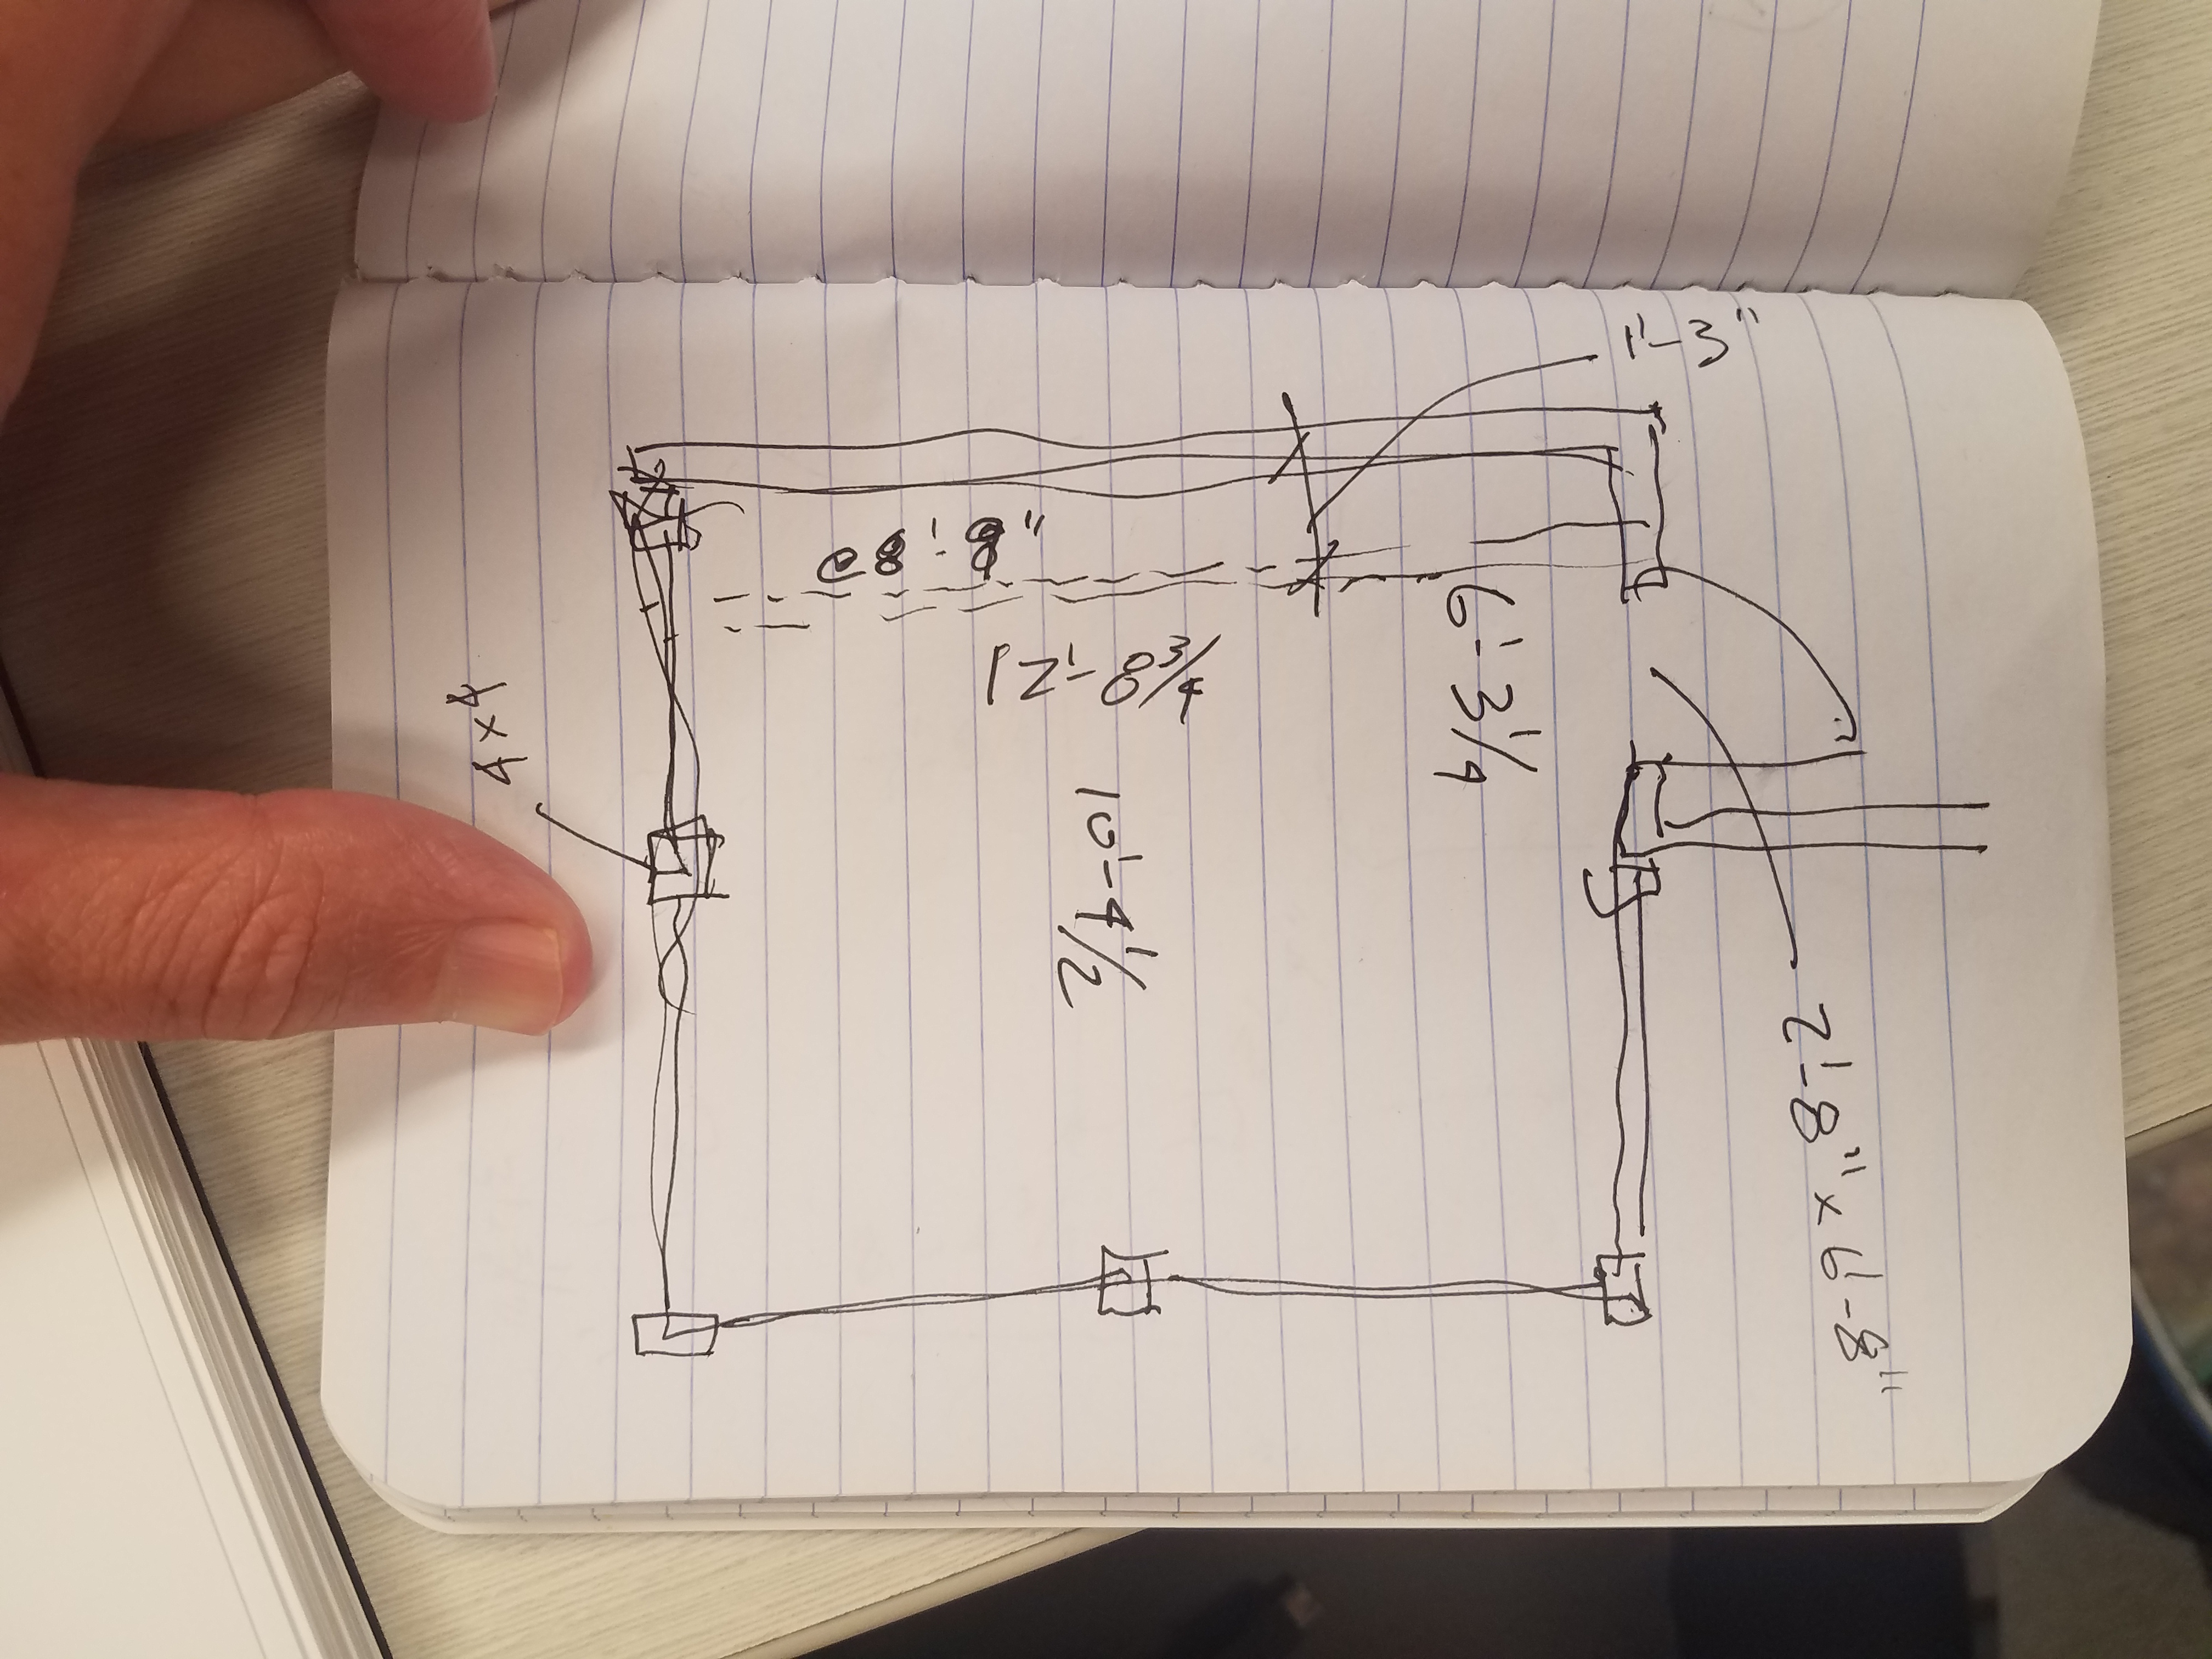 2'-8" x 6'-8"
1'-3"
6'-3 1/4
12'-8 3/4
10'-4 1/2
@ 8'-8"
4x4